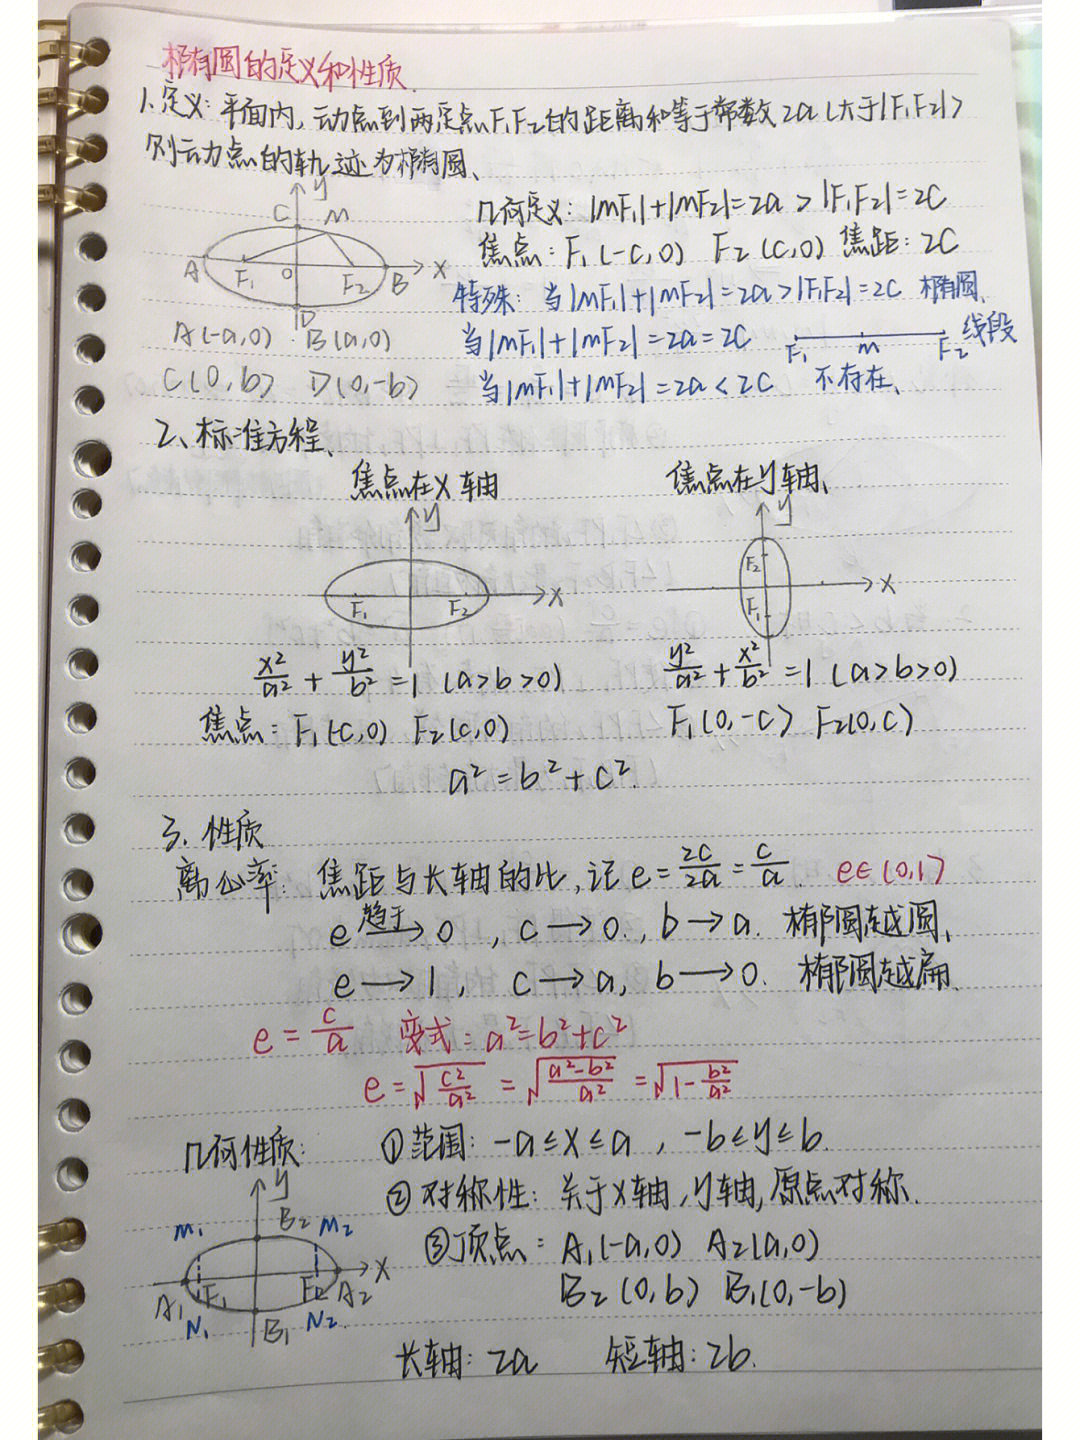 椭圆的定义和性质.
1、定义:平面内,动点到两定点F₁F₂的距离和等于常数2a(大于|F₁F₂|)
则动点的轨迹为椭圆、
y
C M
A F₁ O F₂ B X
D
几何定义:|MF₁|+|MF₂|=2a>|F₁F₂|=2C
焦点:F₁(-c,0) F₂(c,0) 焦距:2C
特殊:当|MF₁|+|MF₂|=2a>|F₁F₂|=2C 椭圆、
A(-a,0) · B(a,0)
当|MF₁|+|MF₂|=2a=2C F₁ M F₂ 线段
C(0,b) D(0,-b)
当|MF₁|+|MF₂|=2a<2C 不存在、
2、标准方程、
焦点在X轴 焦点在y轴、
y y
F₁ F₂ X F₂ F₁ X
x²/a² + y²/b² =1 (a>b>0) y²/a² + x²/b² =1 (a>b>0)
焦点:F₁(-c,0) F₂(c,0) F₁(0,-c) F₂(0,c)
a²=b²+c².
3.性质
离心率:焦距与长轴的比,记e=2c/2a=c/a. e∈(0,1)
e 趋于→0 ,c→0.,b→a. 椭圆越圆、
e→1, c→a, b→0. 椭圆越扁.
e=c/a 变式:a²=b²+c²
e=√(c²/a²) =√((a²-b²)/a²) =√(1-b²/a²)
几何性质: ①范围:-a≤x≤a ,-b≤y≤b.
②对称性:关于x轴,y轴,原点对称.
③顶点:A₁(-a,0) A₂(a,0)
B₂(0,b) B₁(0,-b)
y
M₁ B₂ M₂
A₁ F₁ F₂ A₂ X
N₁ B₁ N₂
长轴:2a 短轴:2b.